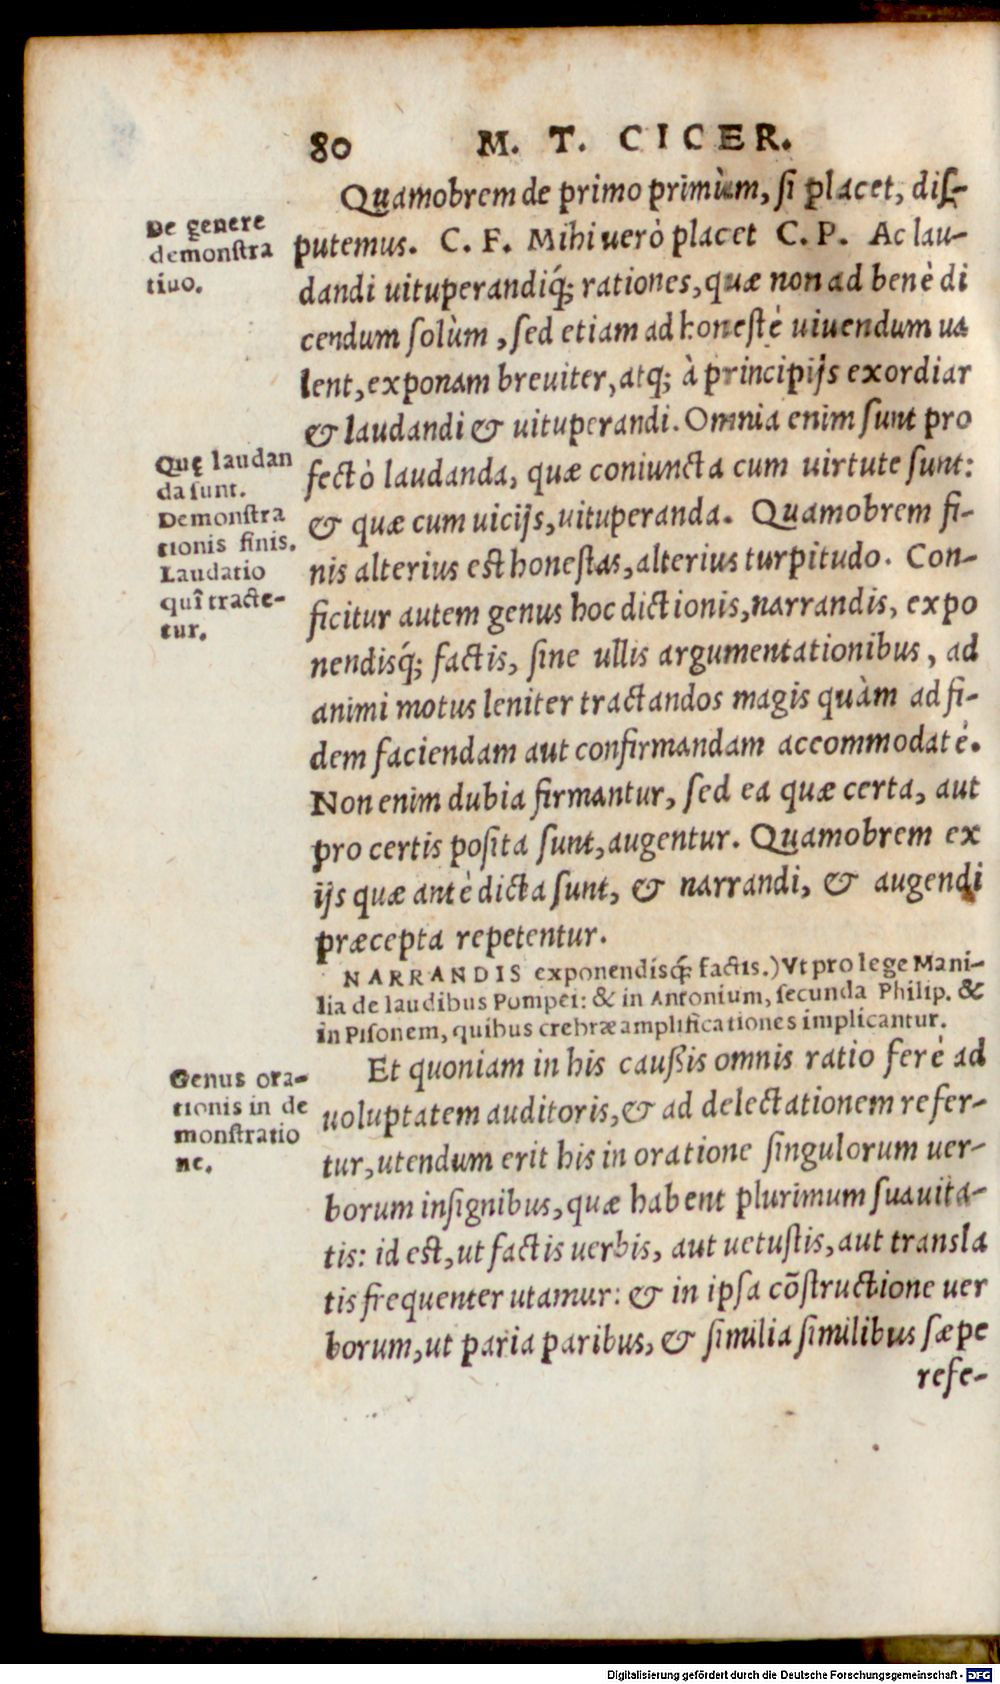 80 M. T. CICER.
Quamobrem de primo primùm, ſi placet, diſ-
putemus. C. F. Mihi uerò placet C. P. Ac lau-
dandi uituperandiq́; rationes, quæ non ad benè di
cendum ſolùm, ſed etiam ad honeſtè uiuendum ua
lent, exponam breuiter, atq; à principijs exordiar
& laudandi & uituperandi. Omnia enim ſunt pro
fectò laudanda, quæ coniuncta cum uirtute ſunt:
& quæ cum uicijs, uituperanda. Quamobrem fi-
nis alterius eſt honeſtas, alterius turpitudo. Con-
ficitur autem genus hoc dictionis, narrandis, expo
nendisq́; factis, ſine ullis argumentationibus, ad
animi motus leniter tractandos magis quàm ad fi-
dem faciendam aut confirmandam accommodatè.
Non enim dubia firmantur, ſed ea quæ certa, aut
pro certis poſita ſunt, augentur. Quamobrem ex
ijs quæ antè dicta ſunt, & narrandi, & augendi
præcepta repetentur.
NARRANDIS exponendisq́; factis.) Vt pro lege Mani-
lia de laudibus Pompei: & in Antonium, ſecunda Philip. &
in Piſonem, quibus crebræ amplificationes implicantur.
Et quoniam in his cauſsis omnis ratio ferè ad
uoluptatem auditoris, & ad delectationem refer-
tur, utendum erit his in oratione ſingulorum uer-
borum inſignibus, quæ habent plurimum ſuauita-
tis: id eſt, ut factis uerbis, aut uetuſtis, aut transla
tis frequenter utamur: & in ipſa cõſtructione uer
borum, ut paria paribus, & ſimilia ſimilibus ſæpe
refe-
De genere
demonſtra
tiuo.
Quę laudan
da ſunt.
Demonſtra
tionis finis.
Laudatio
quî tracte-
tur.
Genus ora-
tionis in de
monſtratio
ne.
Digitalisierung gefördert durch die Deutsche Forschungsgemeinschaft - DFG